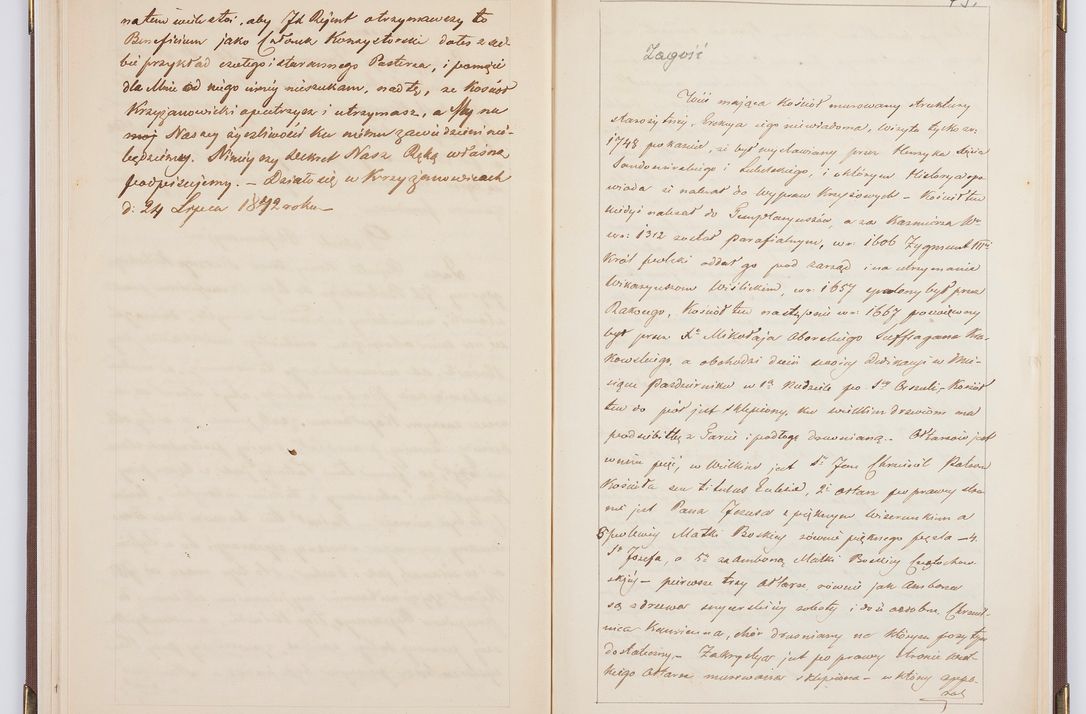 na tem wiele stoi, aby Jd Rejent otrzymawszy to
Beneficium jako Członek Konsystorski dał z sie
bie przykład czułego i starannego Pasterza, i pomocy
dla Mnie od niego innej nieszukam, nad tę, że Kosciół
Krzyżanowicki opatrzysz i utrzymasz, a My na
moj Naszey życzliwości ku niemu zawiedzieni nie-
będziemy. Niniejszy dekret Nasz Ręką własną
podpisujemy. — Działo się w Krzyżanowicach
d: 24 Lipca 18 2 roku —
Zagość
Wieś mająca Kościół murowany struktury
starożytnej, Erekcya jego niewiadoma, wizyta tylko z r:
1748 pokazuie, że był wystawiony przez Henryka Xięcia
Sandomirskiego i Lubelskiego, o którym Historya opo
wiada że należał do Wypraw Krzyżowych — Kościół ten
kiedyś należał do Templaryuszów, a za Kazimierza W°
w r: 1312 został parafialnym, w r: 1606 Zygmunt III
Król polski oddał go pod zarząd i na utrzymanie
Wikaryuszom Wiślickim, w r: 1657 spalony był przez
Rakocego, Kościół ten następnie w r: 1667 poświęcony
był przez X° Mikołaja Oborskiego Suffragana Kra-
kowskiego, a obchodzi dzień swojey Dedikacyi w Mie-
siącu Październiku w 1ą Niedzielę po S. Urszuli. Kościół
ten do pół jest sklepiony, ku wielkim drzwiom ma
podsiębitkę z Tarcic i podłogę drewnianą. Ołtarzów jest
w nim pięć, w Wielkim jest S. Jan Chrzciciel Patron
Kościoła seu titulus Eclesiæ, 2i ołtarz po prawey stro
nie jest Pana Jezusa z pięknym wizerunkiem a
po lewey Matki Boskiey równie pięknego pęzla — 4.
S° Józefa, a 5° za amboną Matki Boskiey Częstochow
skiej — pierwsze trzy ołtarze, równie jak ambona
są z drzewa snycerskiej roboty i dość ozdobne. Chrzciel
nica Kamienna, chór drewniany na którym pozytyw
dostateczny. — Zakrystya jest po prawey stronie Wiel-
kiego Ołtarza murowana sklepiona — w którey appa-
rat